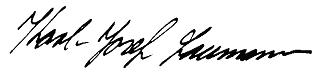 Karl-Josef Laumann